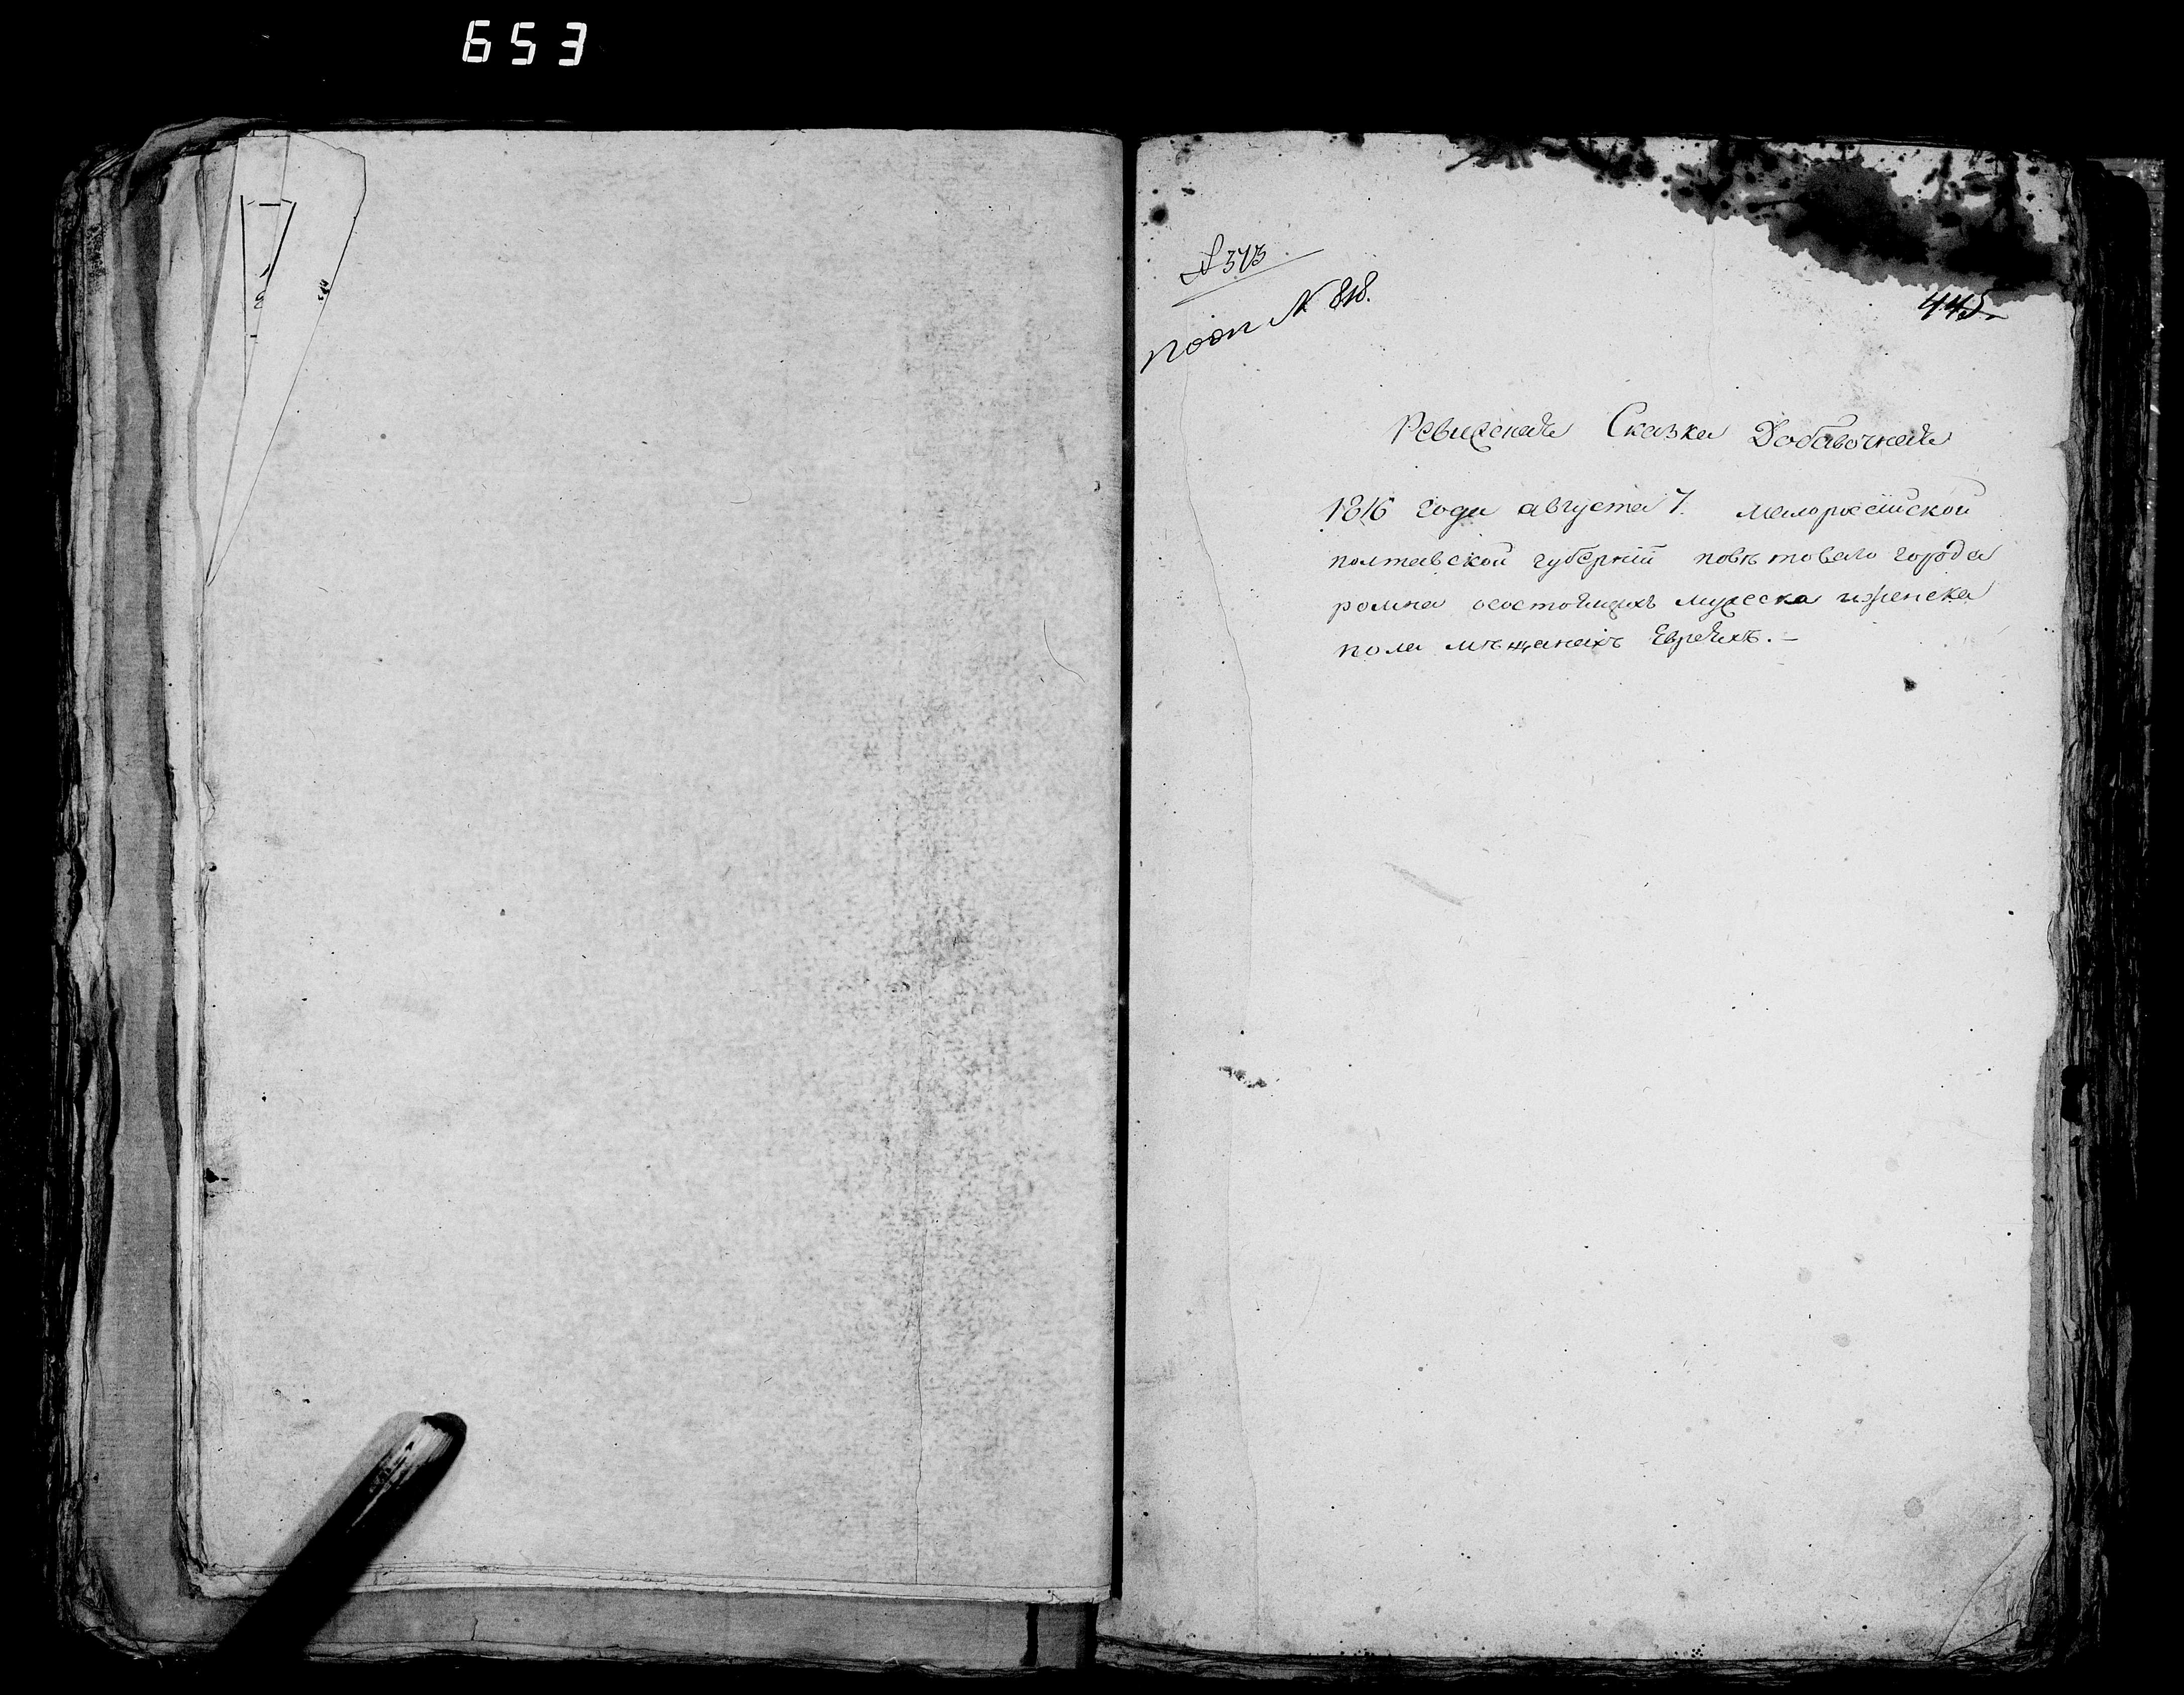 653
№ 373
пооп № 818.
445.
Ревизская Сказка Добавочная
1816 года августа 7. малороссійской
полтавской губерніи повѣтоваго города
ромна осостоящихъ мужеска иженска
пола мѣщанахъ Евреяхъ. —